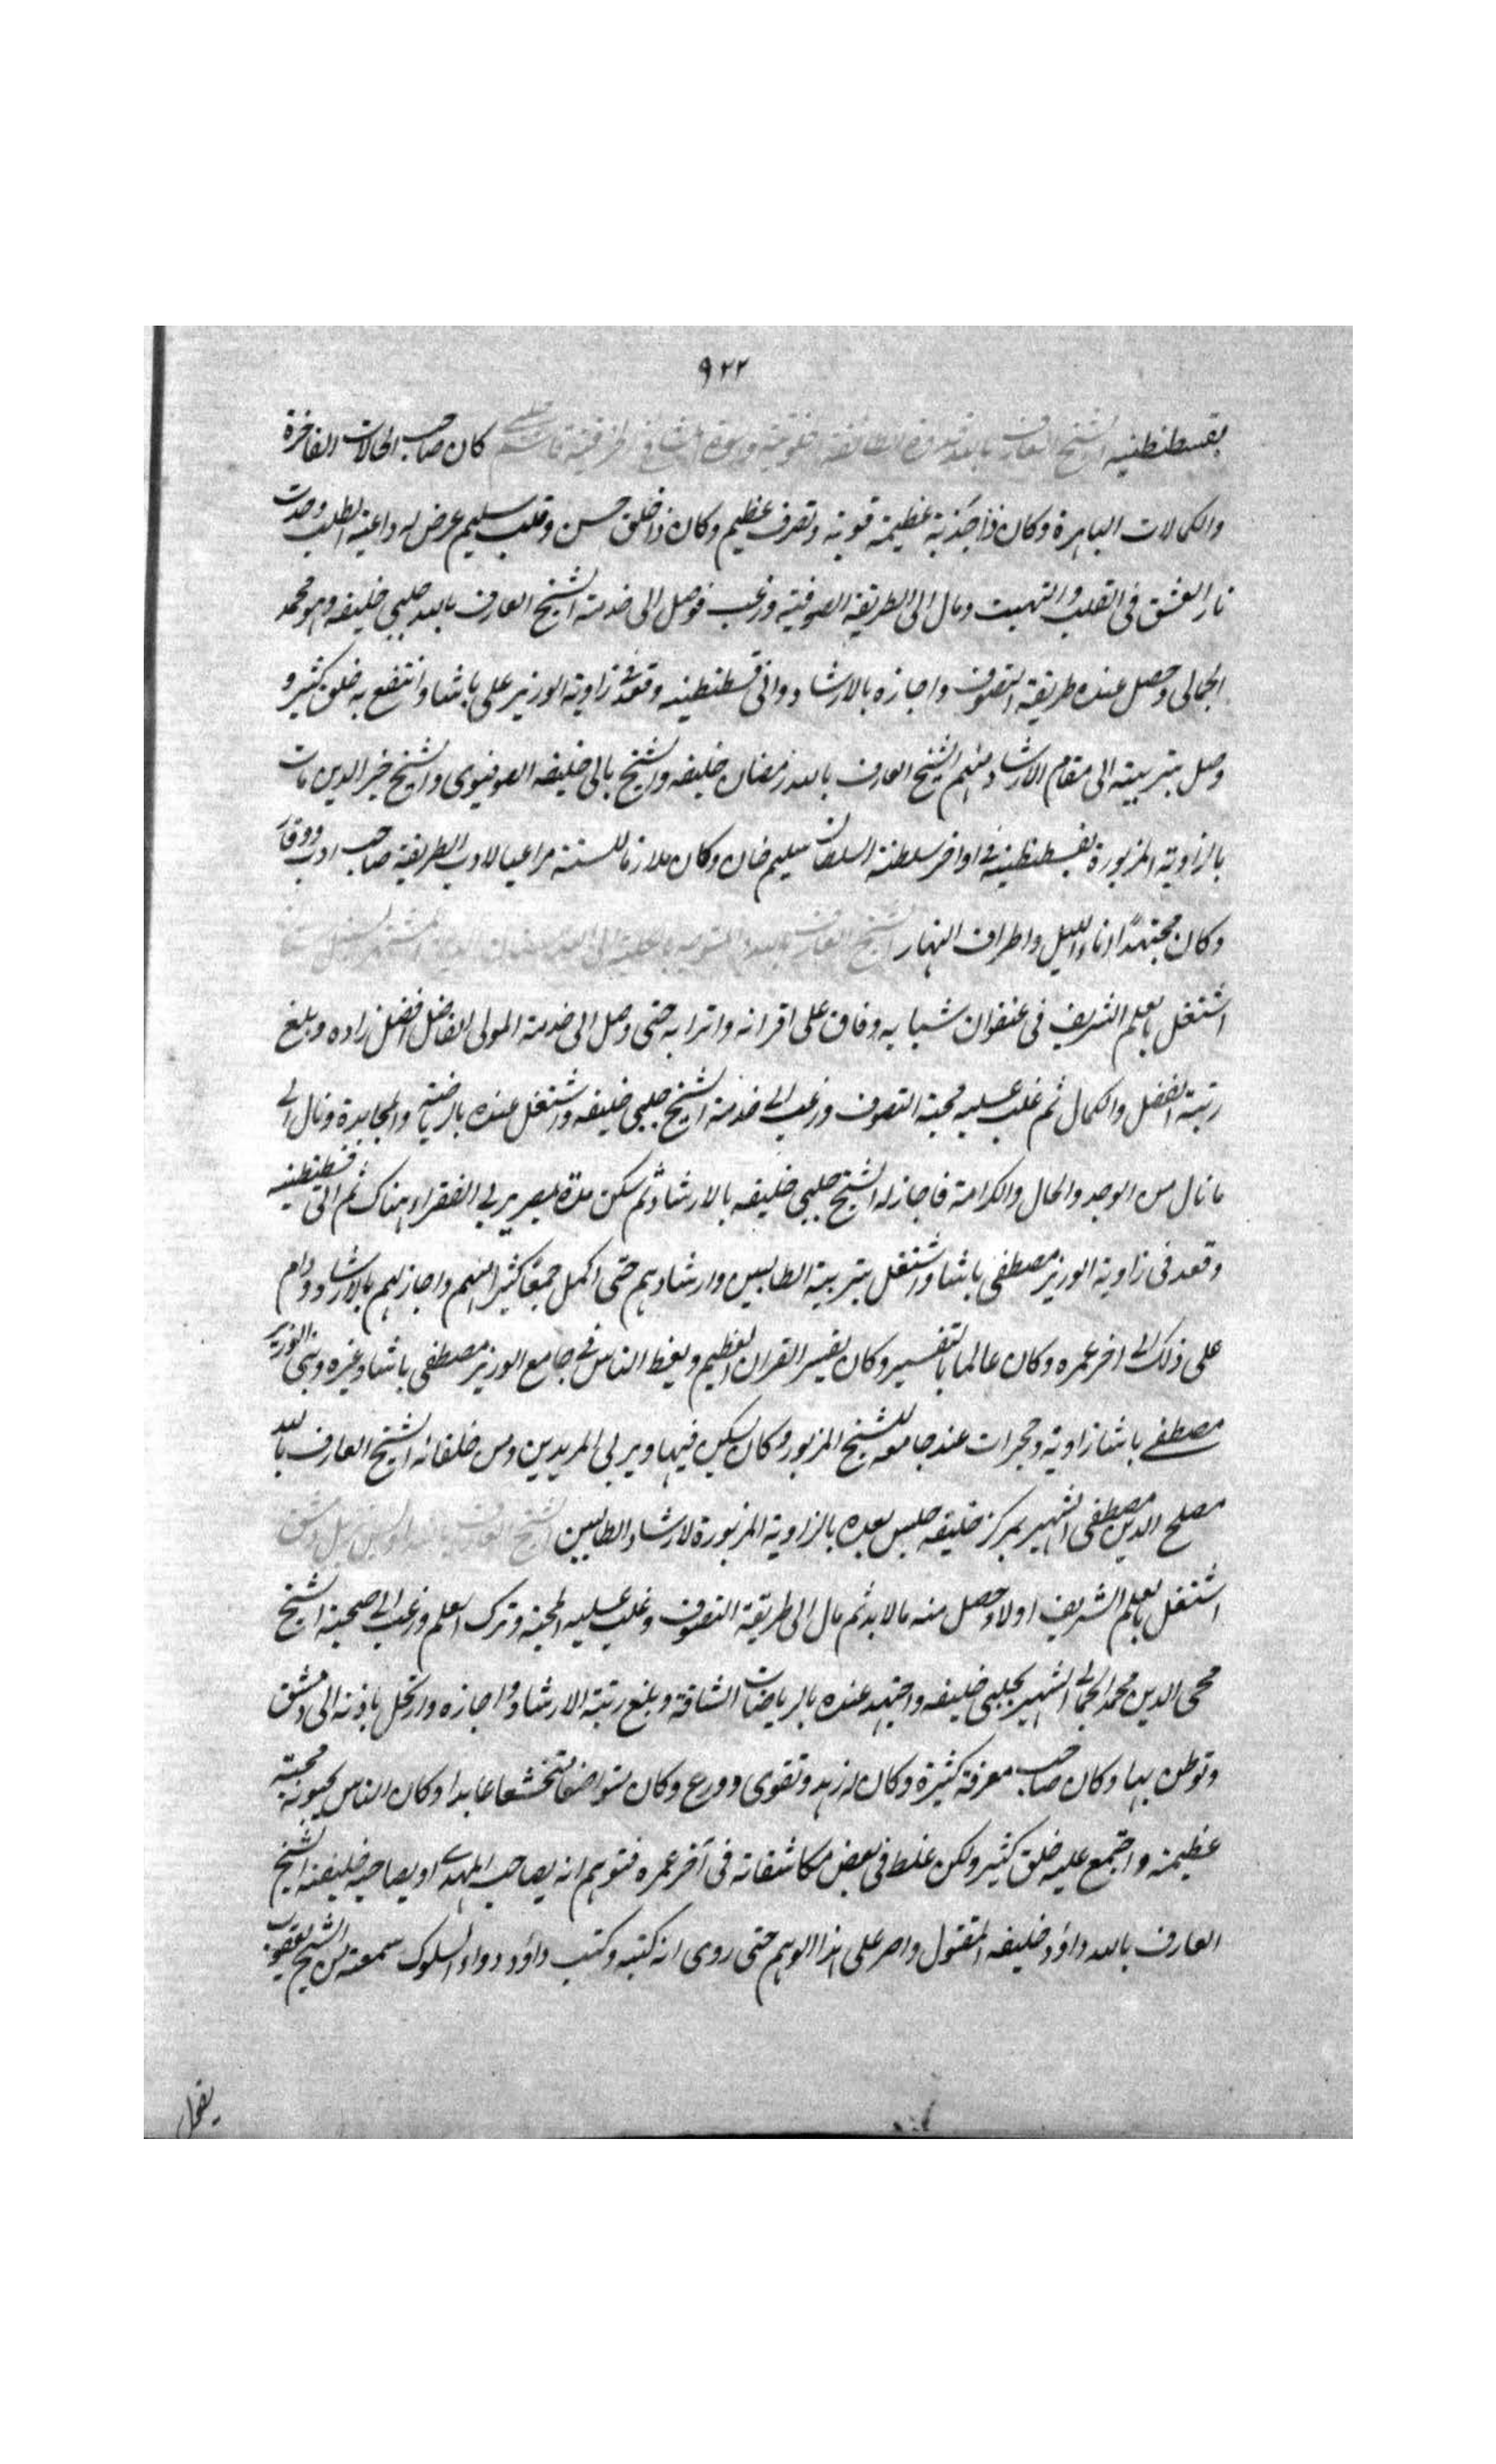 ٩٢٢
بقسطنطينيه الشيخ العارف بالله قدوة الطائفة الخلوتية وزبدة المشايخ الطريقية قاسم چلبى كان صاحب الحالات الفاخرة
والكمالات الباهرة وكان ذا جذبة عظيمة قوية وتصرف عظيم وكان ذا خلق حسن وقلب سليم عرض له داعية الطلب وقدت
نار العشق فى القلب والتهبت ومال الى الطريقة الصوفية ورغب فوصل الى خدمة الشيخ العارف بالله چلبى خليفه وهو محمد
الجمالى وحصل عنده طريقة التصوف واجازه بالارشاد واتى قسطنطينيه وقعد فى زاوية الوزير على باشا وانتفع به خلق كثير و
وصل بتربيته الى مقام الارشاد منهم الشيخ العارف بالله رمضان خليفه والشيخ بالى خليفه الصوفيوى والشيخ خير الدين مات
بالزاوية المزبورة بقسطنطينيه فى اواخر سلطنة السلطان سليم خان وكان ملازما للسنة مراعيا لادب الطريقة صاحب ادب ووقار
وكان مجتهدًا اناء الليل واطراف النهار الشيخ العارف بالله المتوجه بالكلية الى الله
اشتغل بالعلم الشريف فى عنفوان شبابه وفاق على اقرانه واترابه حتى وصل الى خدمة المولى الفاضل افضل زاده وبلغ
رتبة الفضل والكمال ثم غلب عليه محبة التصوف ورغب الى خدمة الشيخ چلبى خليفه واشتغل عنده بالرياضة والمجاهدة ونال الى
ما نال من الوجد والحال والكرامة فاجاز له الشيخ چلبى خليفه بالارشاد ثم سكن مدة بمصر يربى الفقراء هناك ثم اتى قسطنطينيه
وقعد فى زاوية الوزير مصطفى باشا واشتغل بتربية الطالبين وارشادهم حتى اكمل جمعا كثيرا منهم واجاز لهم بالارشاد ودام
على ذلك الى اخر عمره وكان عالما بالتفسير وكان يفسر القران العظيم ويعظ الناس فى جامع الوزير مصطفى باشا وغيره وبنى الوزير
مصطفى باشا زاوية وحجرات عند جامعه للشيخ المزبور وكان يسكن فيها ويربى المريدين ومن خلفائه الشيخ العارف بالله
مصلح الدين مصطفى الشهير بمركز خليفه جلس بعده بالزاوية المزبورة لارشاد الطالبين الشيخ العارف بالله اويس نزيل دمشق
اشتغل بالعلم الشريف اولا وحصل منه ما لا بد ثم مال الى طريقة التصوف وغلب عليه المحبة وترك العلم ورغب الى صحبة الشيخ
محى الدين محمد الجمالى الشهير بچلبى خليفه واجتهد عنده بالرياضات الشاقة وبلغ رتبة الارشاد واجازه وارتحل باذنه الى دمشق
وتوطن بها وكان صاحب معرفة كثيرة وكان له زهد وتقوى وورع وكان متواضعا متخشعا عابدا وكان الناس يحبونه محبة
عظيمة واجتمع عليه خلق كثير ولكن غلط فى بعض مكاشفاته فى آخر عمره فتوهم انه يصاحب المهدى او يصاحبه خليفته الشيخ
العارف بالله داؤد خليفه المقتول واصر على هذا الوهم حتى روى انه كتبه وكتب داؤد دواء السلوك سمعته من الشيخ يعقوب
يقول